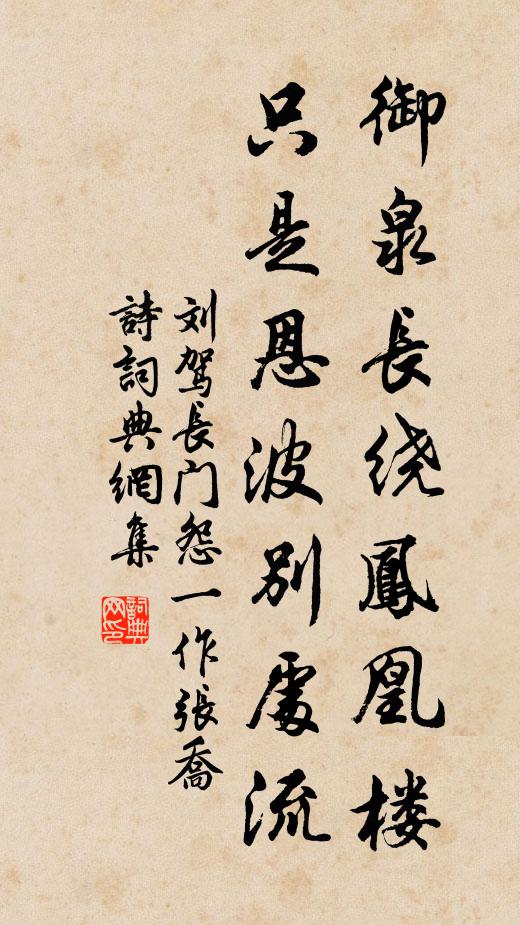 御泉長绕鳳凰楼
只是恩波别處流
刘駕長门怨一作張喬
詩詞典網集
詞典網印